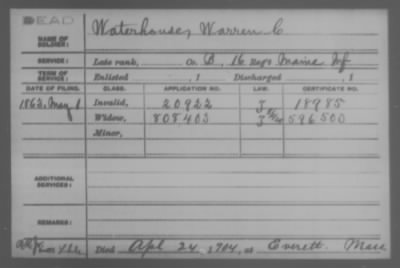 DEAD
NAME OF SOLDIER: Waterhouse, Warren C
SERVICE: Late rank, Co. B, 16 Reg't Maine Inf
TERM OF SERVICE: Enlisted , 1 Discharged , 1
DATE OF FILING. CLASS. APPLICATION NO. LAW. CERTIFICATE NO.
1863, May 1 Invalid, 20922 18985
Widow, 808403 596500
Minor,
ADDITIONAL SERVICES:
REMARKS:
Died Apl 24, 1904, at Everett. Mass